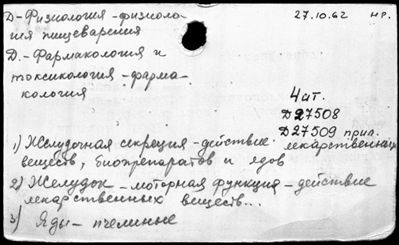 Д-Физиология-физиоло-
гия пищеварения
27.10.62 нр.
Д.-Фармакология и
токсикология-фарма-
кология
4 чт.
Д27508
Д27509 прил.
1) Желудочная секреция-действие лекарственных
веществ, биопрепаратов и ядов
2) Желудок-моторная функция-действие
лекарственных веществ...
3) Яды-пчелиные